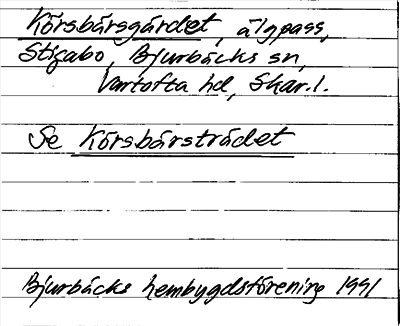 Körsbärsgärdet, älgpass,
Stigabo, Bjurbäcks sn,
Vartofta hd, Skar.l.
Se Körsbärsträdet
Bjurbäcks hembygdsförening 1991